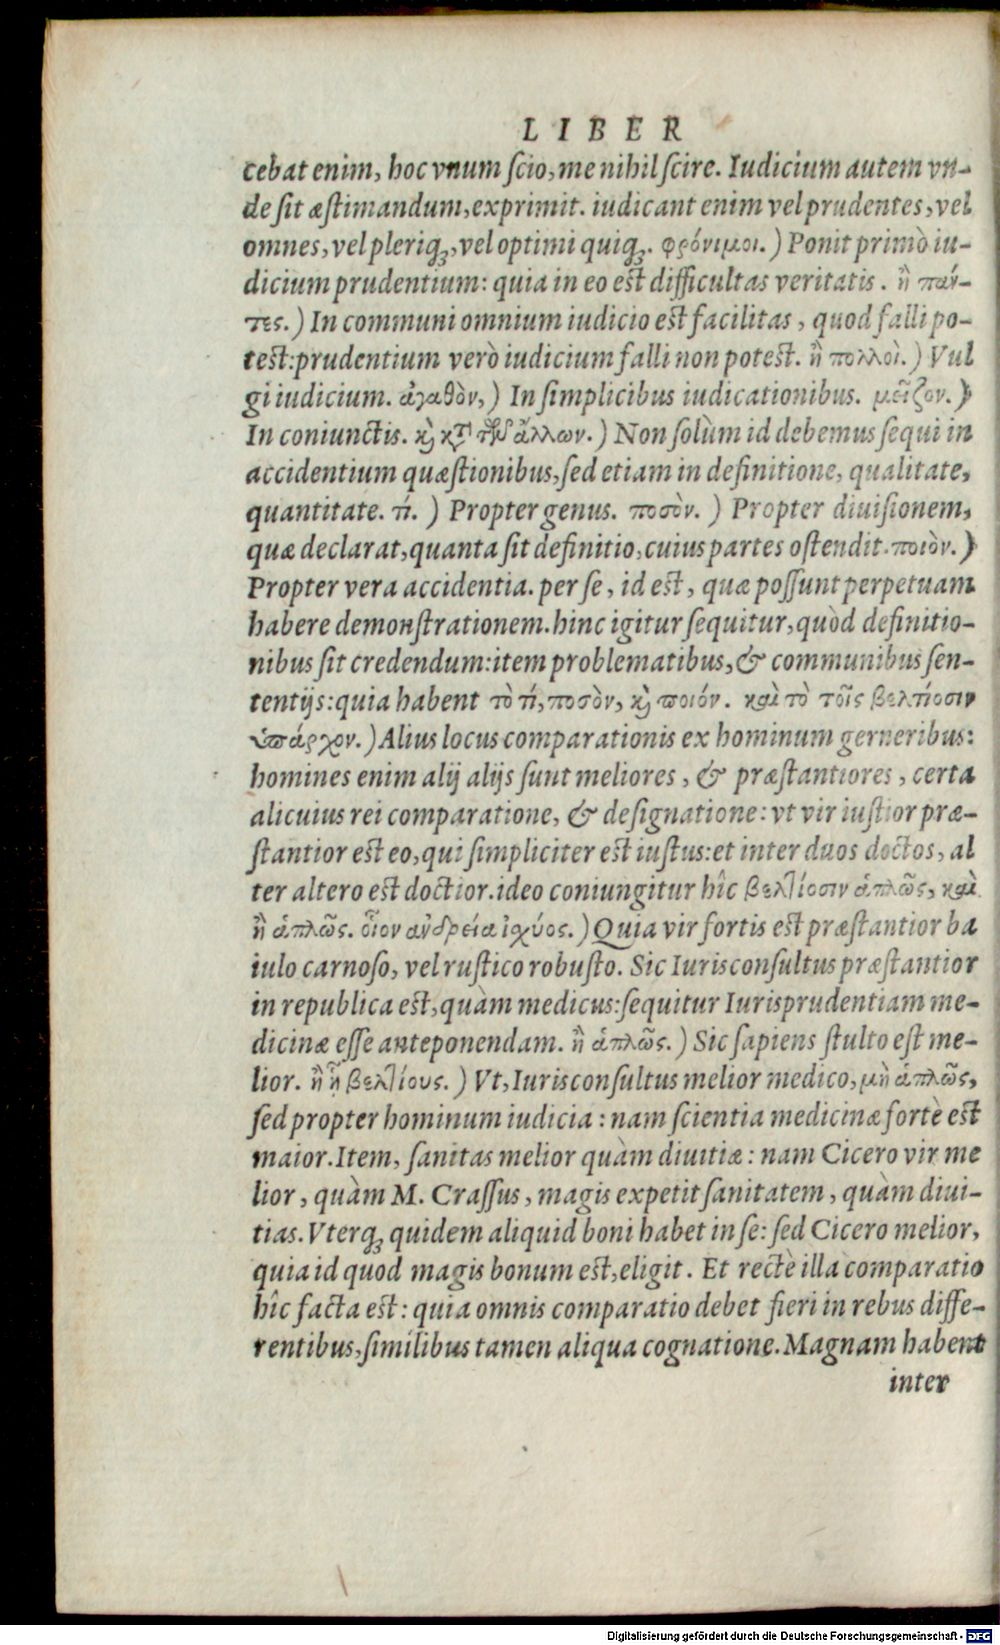 LIBER
cebat enim, hoc vnum scio, me nihil scire. Iudicium autem vn-
de sit æstimandum, exprimit. iudicant enim vel prudentes, vel
omnes, vel pleriq;, vel optimi quiq;. φρόνιμοι.) Ponit primò iu-
dicium prudentium: quia in eo est difficultas veritatis. ἢ πάν-
τες.) In communi omnium iudicio est facilitas, quod falli po-
test: prudentium verò iudicium falli non potest. ἢ πολλοὶ.) Vul
gi iudicium. ἀγαθὸν,) In simplicibus iudicationibus. μεῖζον.)
In coniunctis. κỳ κτ̀ τῶν ἄλλων.) Non solùm id debemus sequi in
accidentium quæstionibus, sed etiam in definitione, qualitate,
quantitate. τί.) Propter genus. ποσὸν.) Propter diuisionem,
quæ declarat, quanta sit definitio, cuius partes ostendit. ποιὸν.)
Propter vera accidentia. per se, id est, quæ possunt perpetuam
habere demonstrationem. hinc igitur sequitur, quòd definitio-
nibus sit credendum: item problematibus, & communibus sen-
tentijs: quia habent τὸ τί, ποσὸν, κỳ ποιόν. καὶ τὸ τοῖς βελτίοσιν
ὑπάρχον.) Alius locus comparationis ex hominum gerneribus:
homines enim alij alijs sunt meliores, & præstantiores, certa
alicuius rei comparatione, & designatione: vt vir iustior præ-
stantior est eo, qui simpliciter est iustus: et inter duos doctos, al
ter altero est doctior. ideo coniungitur hîc βελτίοσιν ἁπλῶς, καὶ
ἢ ἁπλῶς. οἷον ἀνδρεία ἰχύος.) Quia vir fortis est præstantior ba
iulo carnoso, vel rustico robusto. Sic Iurisconsultus præstantior
in republica est, quàm medicus: sequitur Iurisprudentiam me-
dicinæ esse anteponendam. ἢ ἁπλῶς.) Sic sapiens stulto est me-
lior. ἢ ᾗ βελτίους.) Vt, Iurisconsultus melior medico, μὴ ἁπλῶς,
sed propter hominum iudicia: nam scientia medicinæ fortè est
maior. Item, sanitas melior quàm diuitiæ: nam Cicero vir me
lior, quàm M. Crassus, magis expetit sanitatem, quàm diui-
tias. Vterq; quidem aliquid boni habet in se: sed Cicero melior,
quia id quod magis bonum est, eligit. Et rectè illa comparatio
hîc facta est: quia omnis comparatio debet fieri in rebus diffe-
rentibus, similibus tamen aliqua cognatione. Magnam habent
inter
Digitalisierung gefördert durch die Deutsche Forschungsgemeinschaft - DFG